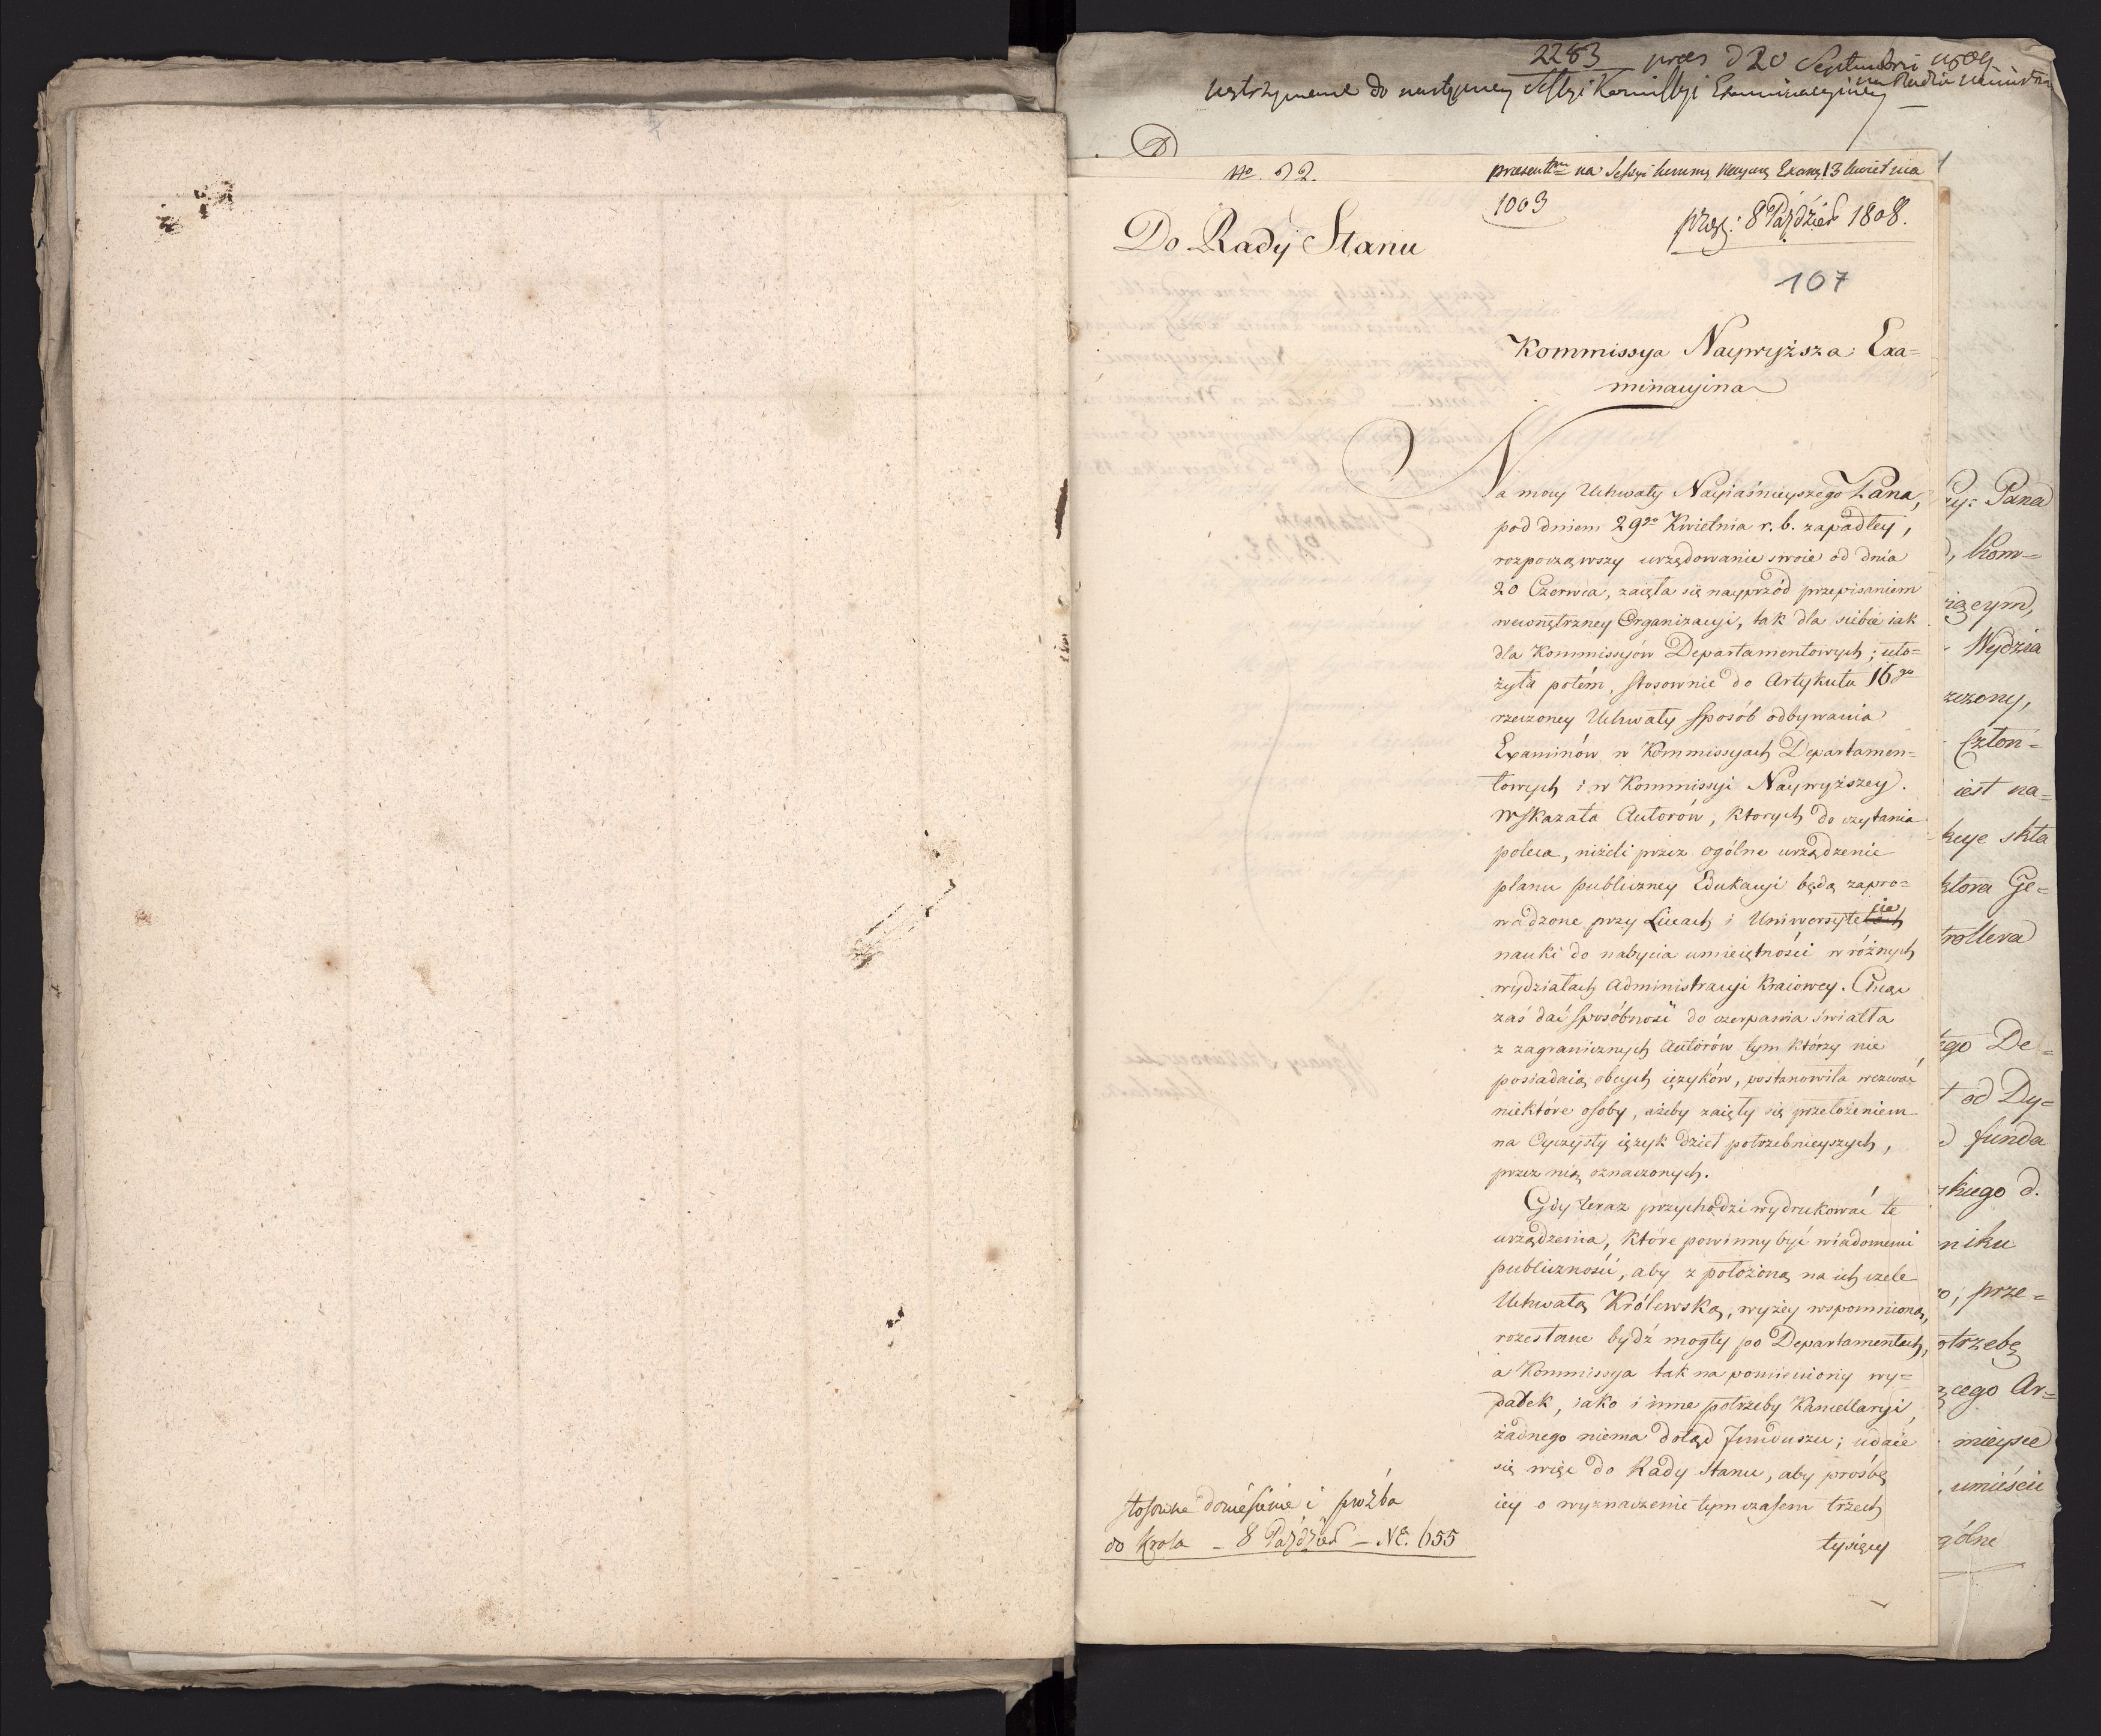 2283 præs d 20 Septembri 1809
wstrzymane do następney Sessyi Kommissyi Examinacyiney
No. 22.
præsentm na Sessyi Kommis. Naywyż. Exam. 13 Kwietnia
1003
Do Rady Stanu
præs: 8 Paździer 1808.
107
Kommissya Naywyższa Exa=
minacyina
Na mocy Uchwały Nayiaśnieyszego Pana,
pod dniem 29go Kwietnia r. b. zapadłey,
rozpocząwszy urzędowanie swoie od dnia
20 Czerwca, zaięła się nayprzód przepisaniem
wewnętrzney Organizacyi, tak dla siebie iak
dla Kommissyów Departamentowych; uło=
żyła potém, stosownie do Artykułu 16go
rzeczoney Uchwały sposób odbywania
Examinów w Kommissyach Departamen=
towych i w Kommissyi Naywyższey.
Wskazała Autorów, ktorych do czytania
poleca, niżeli przez ogólne urządzenie
planu publiczney Edukacyi będą zapro=
wadzone przy Liceach i Uniwersytecie
nauki do nabycia umieiętności w różnych
wydziałach Administracyi Kraiowey. Chcąc
zaś dać sposóbność do czerpania światła
z zagranicznych Autorów tym którzy nie
posiadaią obcych ięzyków, postanowiła wezwać
niektóre osoby, ażeby zaięły się przełożeniem
na Oyczysty ięzyk dzieł potrzebnieyszych,
przez nią oznaczonych.
Gdy teraz przychodzi wydrukować te
urządzenia, które powinny być wiadomemi
publiczności, aby z położoną na ich czele
Uchwałą Królewską, wyżey wspomnioną,
rozesłane bydź mogły po Departamentach,
a Kommissya tak na pomieniony wy=
datek, iako i inne potrzeby Kancellaryi,
żadnego niema dotąd funduszu; udaie
się więc do Rady Stanu, aby prośbę
iey o wyznaczenie tym czasem trzech
tysięcy
stosowne doniesienie i proźba
do Krola – 8 Paździer – No. 655
Pana
Kom=
iącym,
Wydzia
czony,
Człon=
iest na=
kuye skła
ktora Ge=
trollera
ego De=
od Dy=
funda
skiego d.
niku
; prze=
otrzebę
ącego Ar=
mieysce
umieścić
gólne